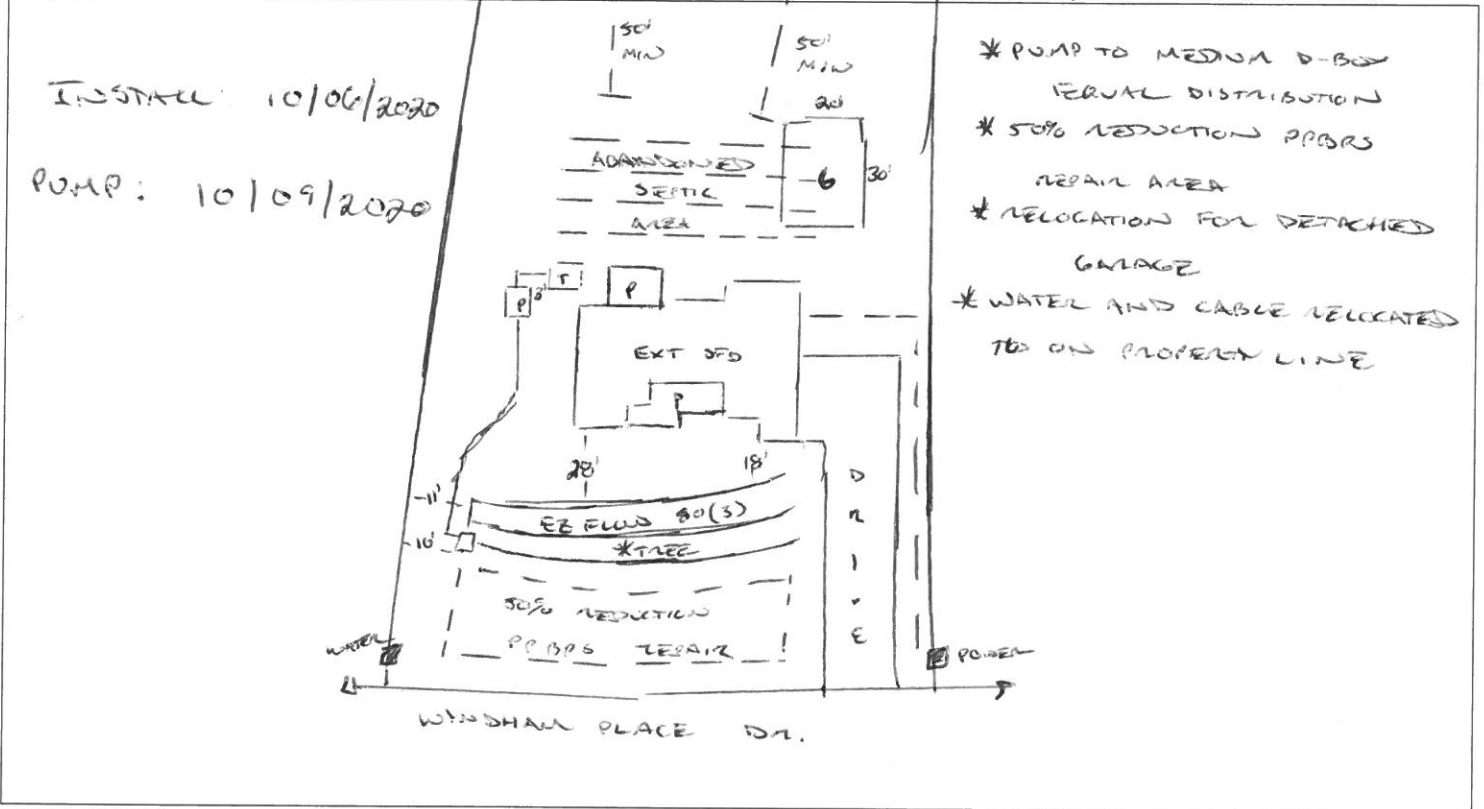 INSTALL 10/06/2020
PUMP: 10/09/2020
50'
MIN
50'
MIN
20'
30'
G
ABANDONED
SEPTIC
AREA
T
P
3'
P
EXT SFD
P
28'
18'
11'
10'
EZ FLOW 80(3)
*TREE
50% REDUCTION
PPBPS REPAIR
DRIVE
WATER
POWER
WINDHAM PLACE DR.
* PUMP TO MEDIUM D-BOX
EQUAL DISTRIBUTION
* 50% REDUCTION PPBPS
REPAIR AREA
* RELOCATION FOR DETACHED
GARAGE
* WATER AND CABLE RELOCATED
TO ON PROPERTY LINE